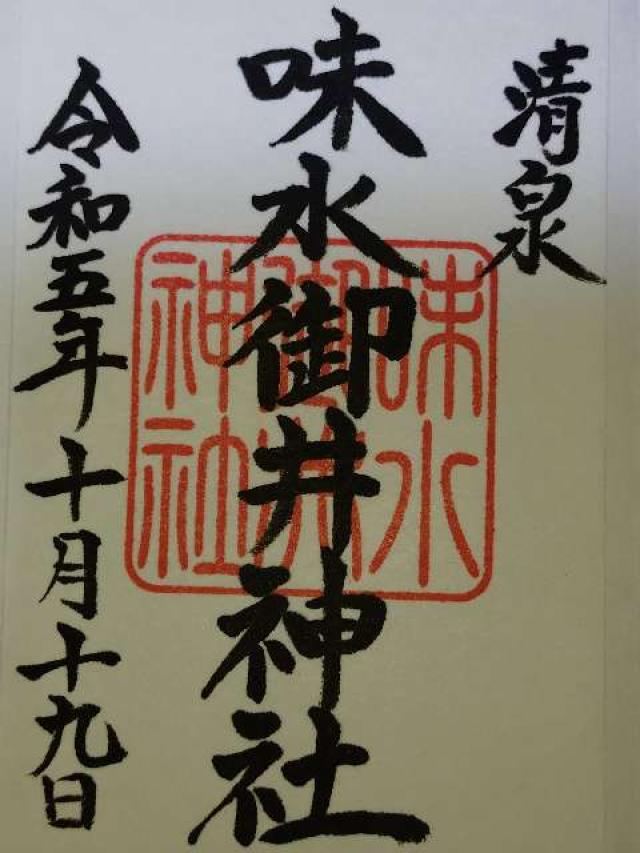 清泉
味水御井神社
味水御井神社
令和五年十月十九日